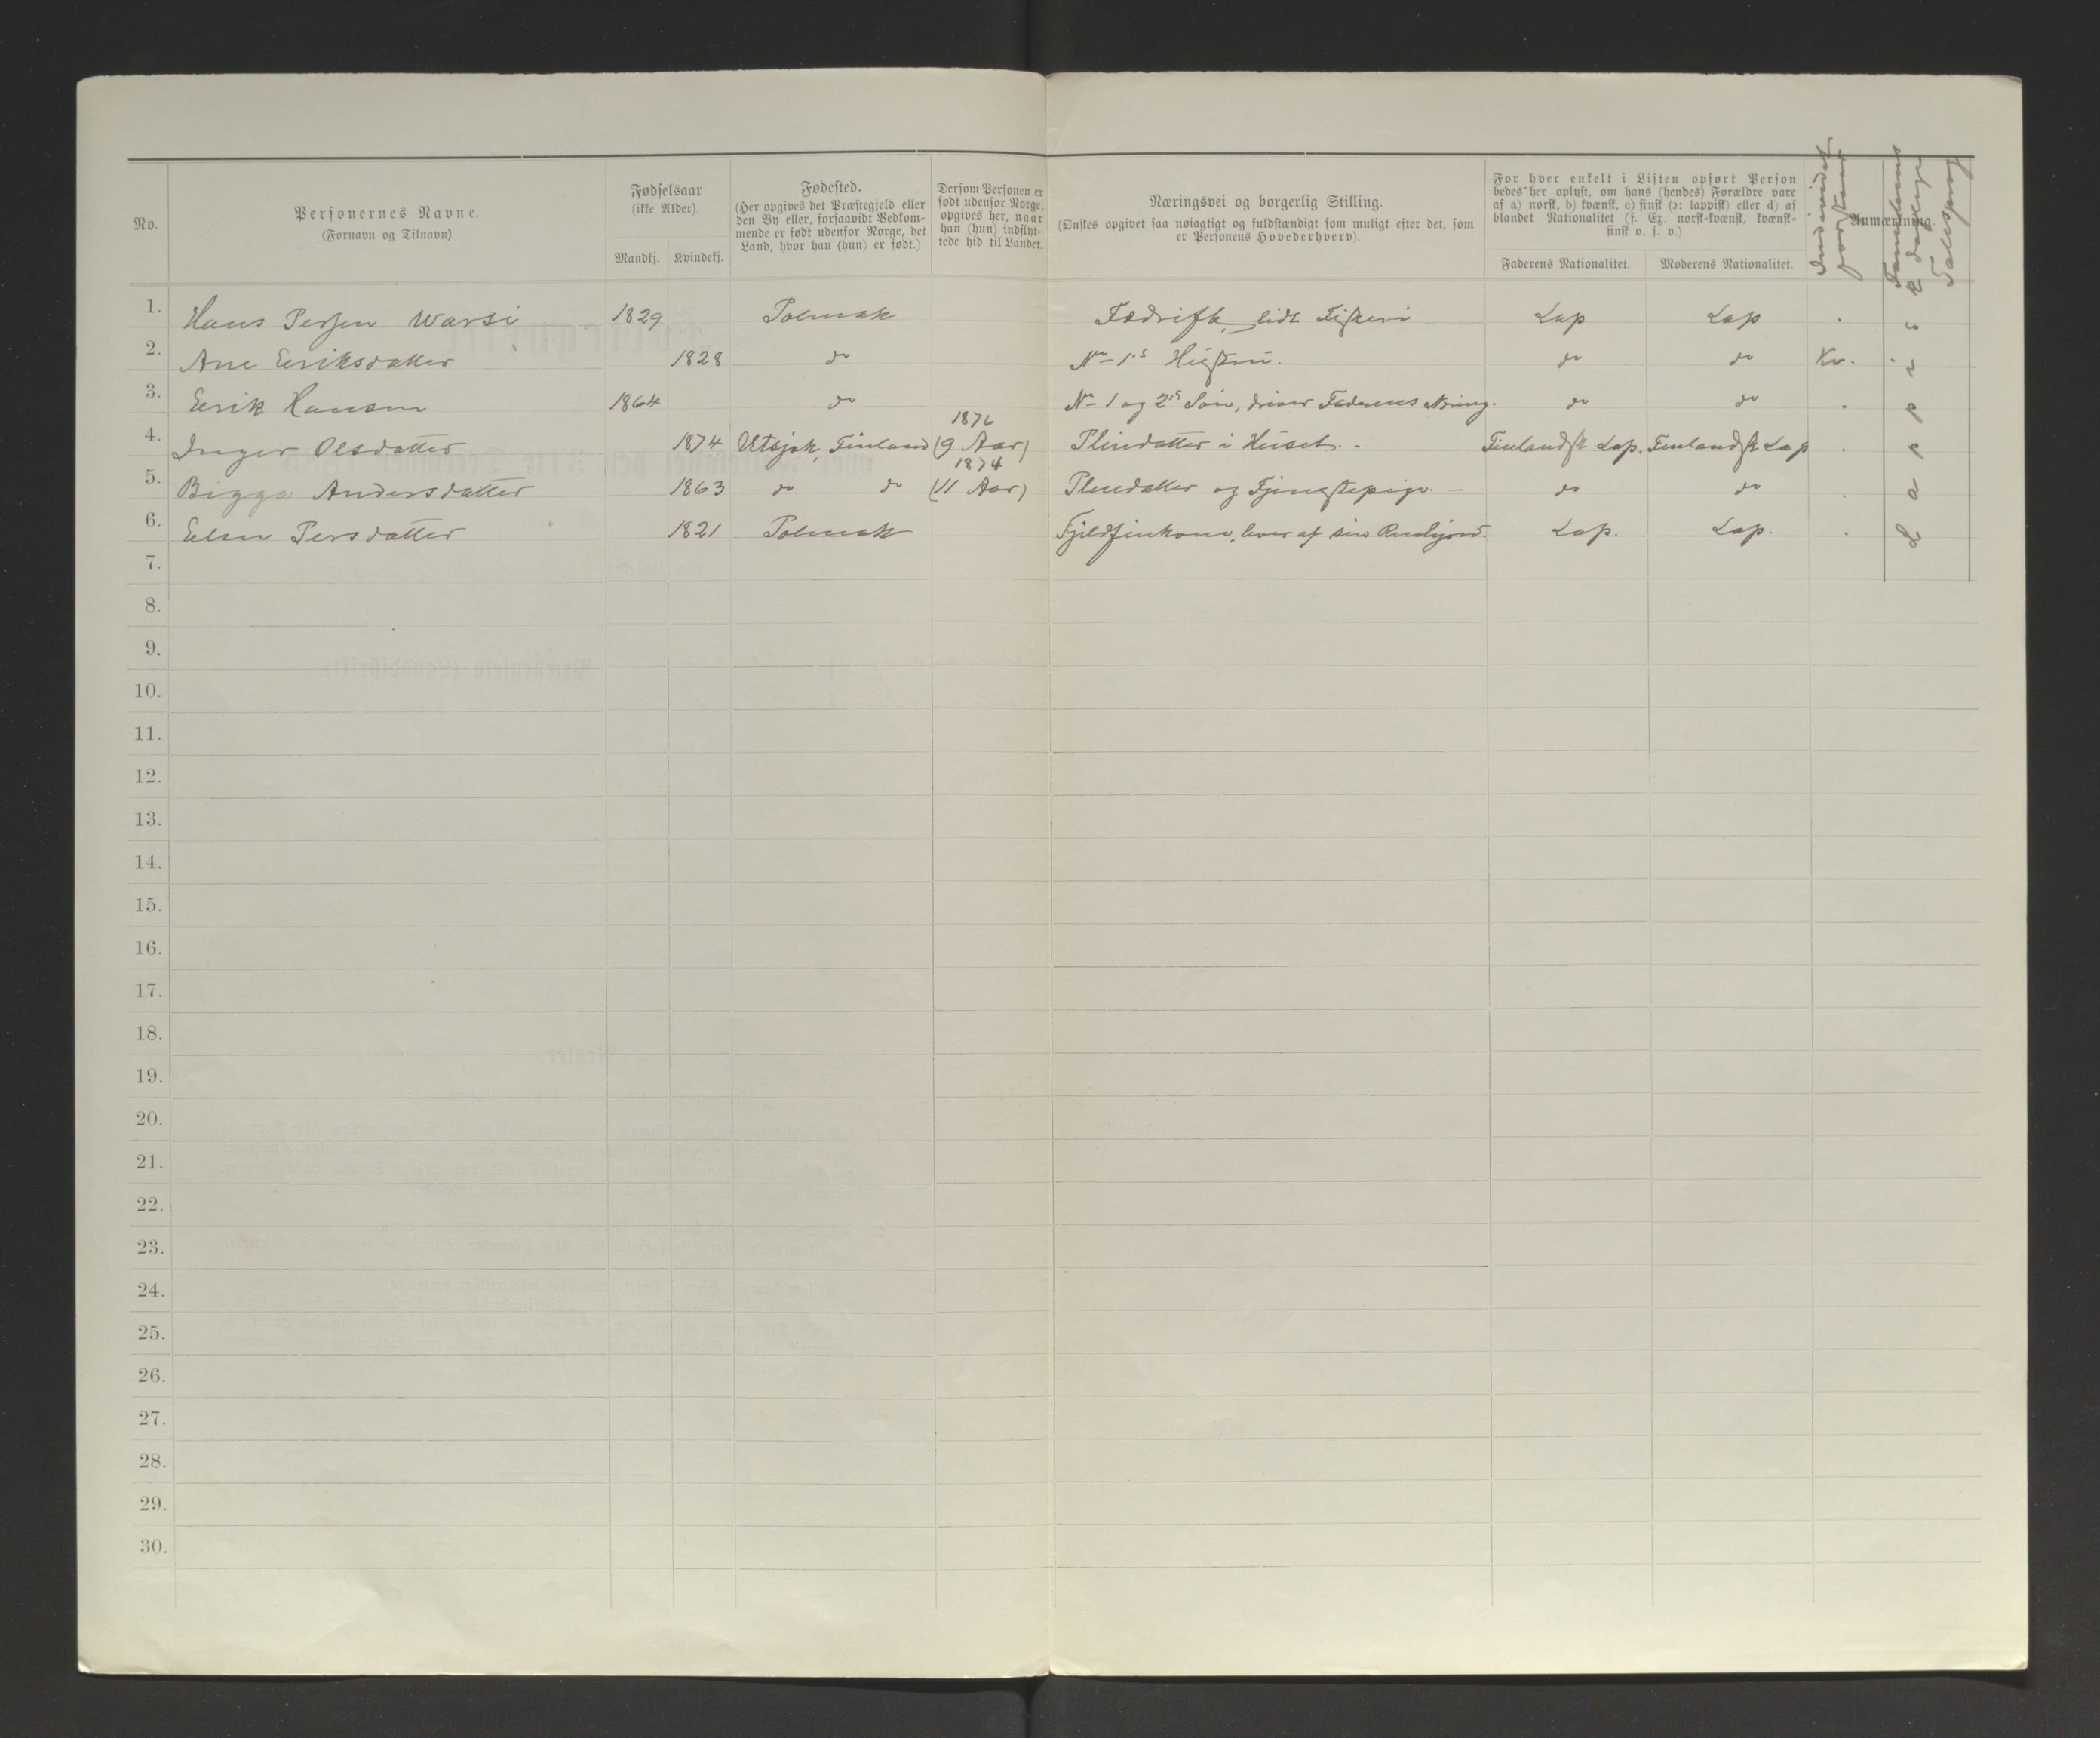 No.
Personernes Navne.
(Fornavn og Tilnavn).
Fødselsaar
(ikke Alder).
Mandkj. Kvindekj.
Fødested.
(Her opgives det Præstegjeld eller
den By eller, forsaavidt Vedkom-
mende er født udenfor Norge, det
Land, hvor han (hun) er født.)
Dersom Personen er
født udenfor Norge,
opgives her, naar
han (hun) indflyt-
tede hid til Landet.
Næringsvei og borgerlig Stilling.
(Ønskes opgivet saa nøiagtigt og fuldstændigt som muligt efter det, som
er Personens Hovederhverv).
For hver enkelt i Listen opført Person
bedes her oplyst, om hans (hendes) Forældre vare
af a) norsk, b) kvænsk, c) finsk (ɔ: lappisk) eller d) af
blandet Nationalitet (f. Ex. norsk-kvænsk, kvænsk-
finsk o. s. v.)
Faderens Nationalitet. Moderens Nationalitet.
Anmærkning.
Individet
forstaar
Familiens
daglige
Talesprog
1. Hans Persen Warsi 1829 Polmak Fædrift, lidt Fiskeri Lap Lap
2. Ane Eriksdatter 1828 do No 1's Hustru. do do Kv.
3. Eerik Hansen 1864 do No 1 og 2's Søn, driver Faderens Næring. do do
1876
4. Inger Olsdatter 1874 Utsjok, Finland (9 Aar) Pleiedatter i Huset. Finlandsk Lap. Finlandsk Lap
1874
5. Bigga Andersdatter 1863 do do (11 Aar) Pleiedatter og Tjenestepige. do do
6. Elen Persdatter 1821 Polmak Fjeldfinkone, lever af sin Renhjord. Lap. Lap.
Lappisk
7.
8.
9.
10.
11.
12.
13.
14.
15.
16.
17.
18.
19.
20.
21.
22.
23.
24.
25.
26.
27.
28.
29.
30.